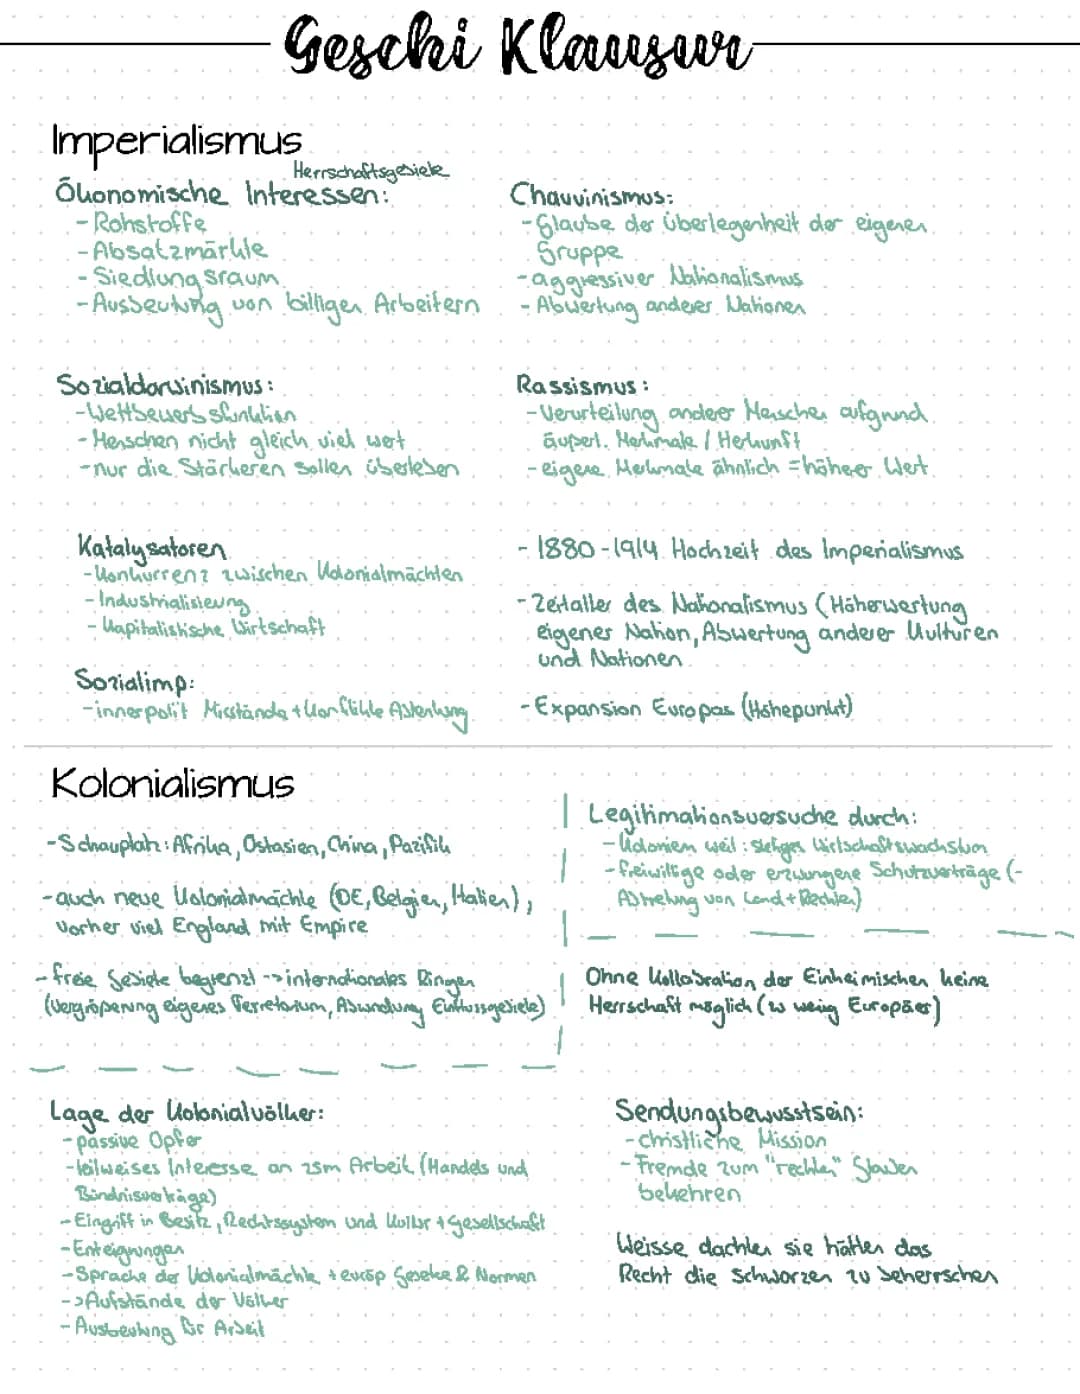 Geschi Klausur
Imperialismus
Herrschaftsgebiete
Ökonomische Interessen:
- Rohstoffe
- Absatzmärkte
- Siedlungsraum
- Ausbeutung von billigen Arbeitern
Chauvinismus:
- Glaube der Überlegenheit der eigenen
Gruppe
- aggressiver Nationalismus
- Abwertung anderer Nationen
Sozialdarwinismus:
- Wettbewerbsfunktion
- Menschen nicht gleich viel wert
- nur die Stärkeren sollen überleben
Rassismus:
- Verurteilung anderer Menschen aufgrund
äußerl. Merkmale / Herkunft
- eigene Merkmale ähnlich = höherer Wert
Katalysatoren
- Konkurrenz zwischen Kolonialmächten
- Industrialisierung
- Kapitalistische Wirtschaft
Sozialimp:
- innerpolit Missstände + Konflikte Ablenkung
- 1880-1914 Hochzeit des Imperialismus
- Zeitalter des Nationalismus (Höherwertung
eigener Nation, Abwertung anderer Kulturen
und Nationen
- Expansion Europas (Höhepunkt)
Kolonialismus
- Schauplatz: Afrika, Ostasien, China, Pazifik
- auch neue Kolonialmächte (DE, Belgien, Italien),
vorher viel England mit Empire
- freie Gebiete begrenzt -> internationales Ringen
(Vergrößerung eigenes Terretorium, Abwendung Einflussgebiete)
Legitimationsversuche durch:
- Kolonien weil: stetiges Wirtschaftswachstum
- freiwillige oder erzwungene Schutzverträge (-
Abtretung von Land + Rechten)
Ohne Kollaboration der Einheimischen keine
Herrschaft möglich (zu wenig Europäer)
Lage der Kolonialvölker:
- passive Opfer
- teilweises Interesse an zsm Arbeit (Handels und
Bündnisverträge)
- Eingriff in Besitz, Rechtssystem und Kultur + Gesellschaft
- Enteignungen
- Sprache der Kolonialmächte + europ Gesetze & Normen
-> Aufstände der Völker
- Ausbeutung für Arbeit
Sendungsbewusstsein:
- christliche Mission
- Fremde zum "rechten" Glauben
bekehren
Weisse dachten sie hätten das
Recht die Schwarzen zu beherrschen